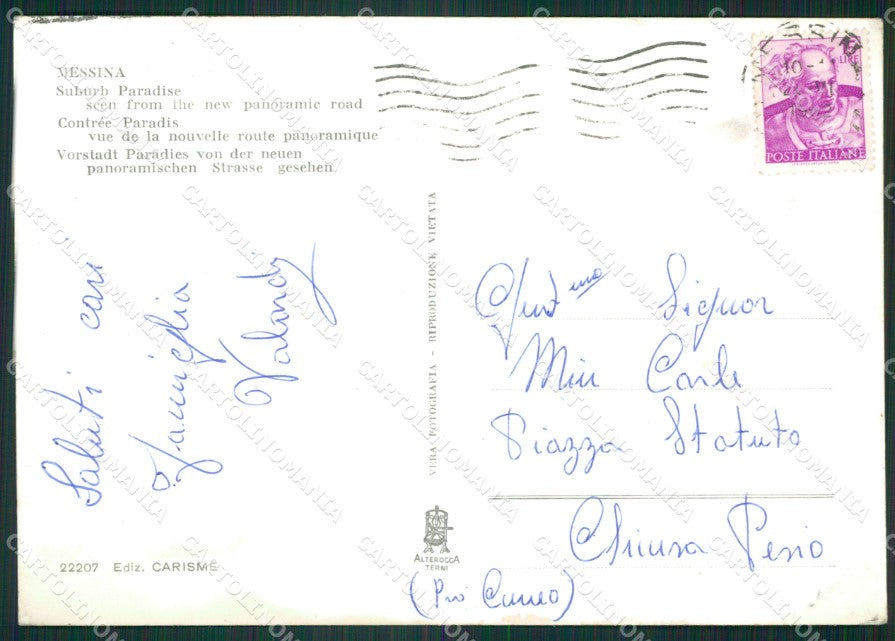 MESSINA
Suburb Paradise
seen from the new panoramic road
Contrée Paradis
vue de la nouvelle route panoramique
Vorstadt Paradies von der neuen
panoramischen Strasse gesehen
MESSINA
LIRE
POSTE ITALIANE
Saluti cari
Famiglia
VERA FOTOGRAFIA - RIPRODUZIONE VIETATA
Gent.mo Signor
Carlo
Piazza Statuto
Chiusa Pesio
(Prov Cuneo)
ALTEROCCA
TERNI
22207 Ediz. CARISME
CARTOLINOMANIA